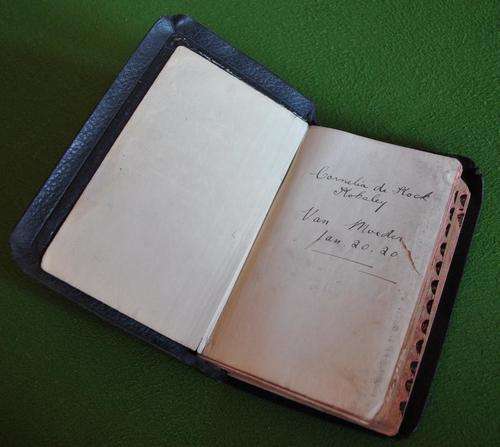 Cornelia de Kock
Kohaley
Van Moeder
Jan 20. 20